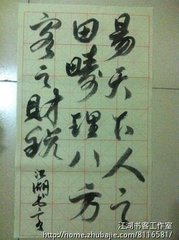 易天下人之
田畴理八方
客之财税
江湖书客
江湖书客工作室
http://home.zhubajie.com/81165817/